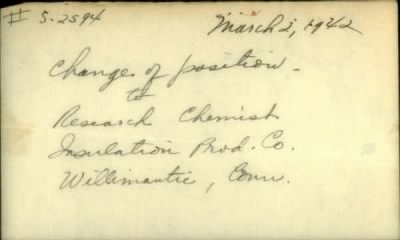 # S-2594
March 2, 1942
Change of position -
to
Research Chemist
Insulation Prod. Co.
Willimantic, Conn.